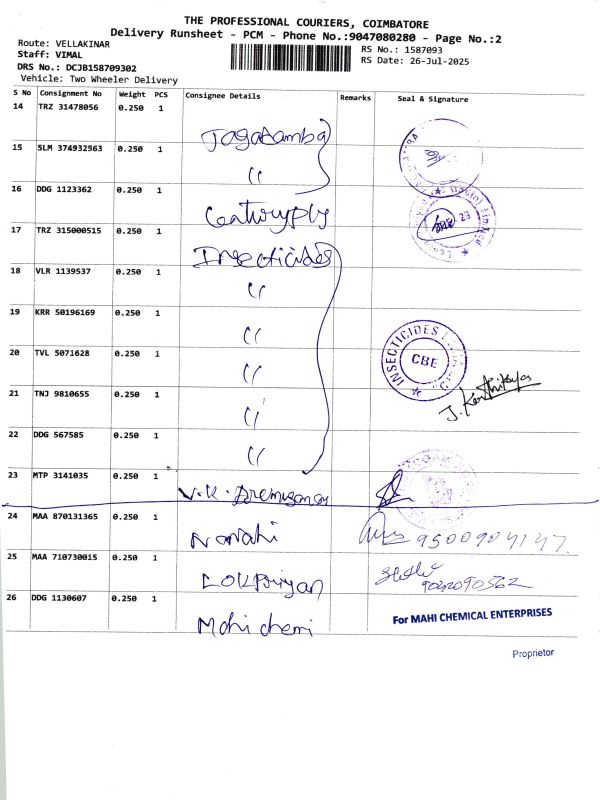 THE PROFESSIONAL COURIERS, COIMBATORE
Delivery Runsheet - PCM - Phone No.:9047080280 - Page No.:2
Route: VELLAKINAR
RS No.: 1587093
Staff: VIMAL
RS Date: 26-Jul-2025
DRS No.: DCJB158709302
Vehicle: Two Wheeler Delivery
S No Consignment No Weight PCS Consignee Details Remarks Seal & Signature
14 TRZ 31478056 0.250 1 Jagadamba
15 SLM 374932563 0.250 1 "
16 DDG 1123362 0.250 1
17 TRZ 315000515 0.250 1 Insecticides
18 VLR 1139537 0.250 1 "
19 KRR 50196169 0.250 1 "
20 TVL 5071628 0.250 1 "
INSECTICIDES
CBE
21 TNJ 9810655 0.250 1 "
22 DDG 567585 0.250 1 "
23 MTP 3141035 0.250 1 V.K.
24 MAA 870131365 0.250 1 9500904147.
25 MAA 710730015 0.250 1 9042090562
26 DDG 1130607 0.250 1 Mahi chemi
For MAHI CHEMICAL ENTERPRISES
Proprietor